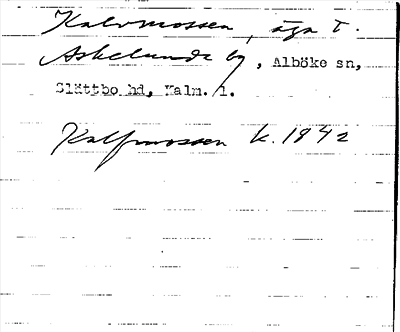 Kalvmossen, äga t.
Askelunda by, Alböke sn,
Slättbo hd, Kalm. l.
Kalfmossen k. 1942